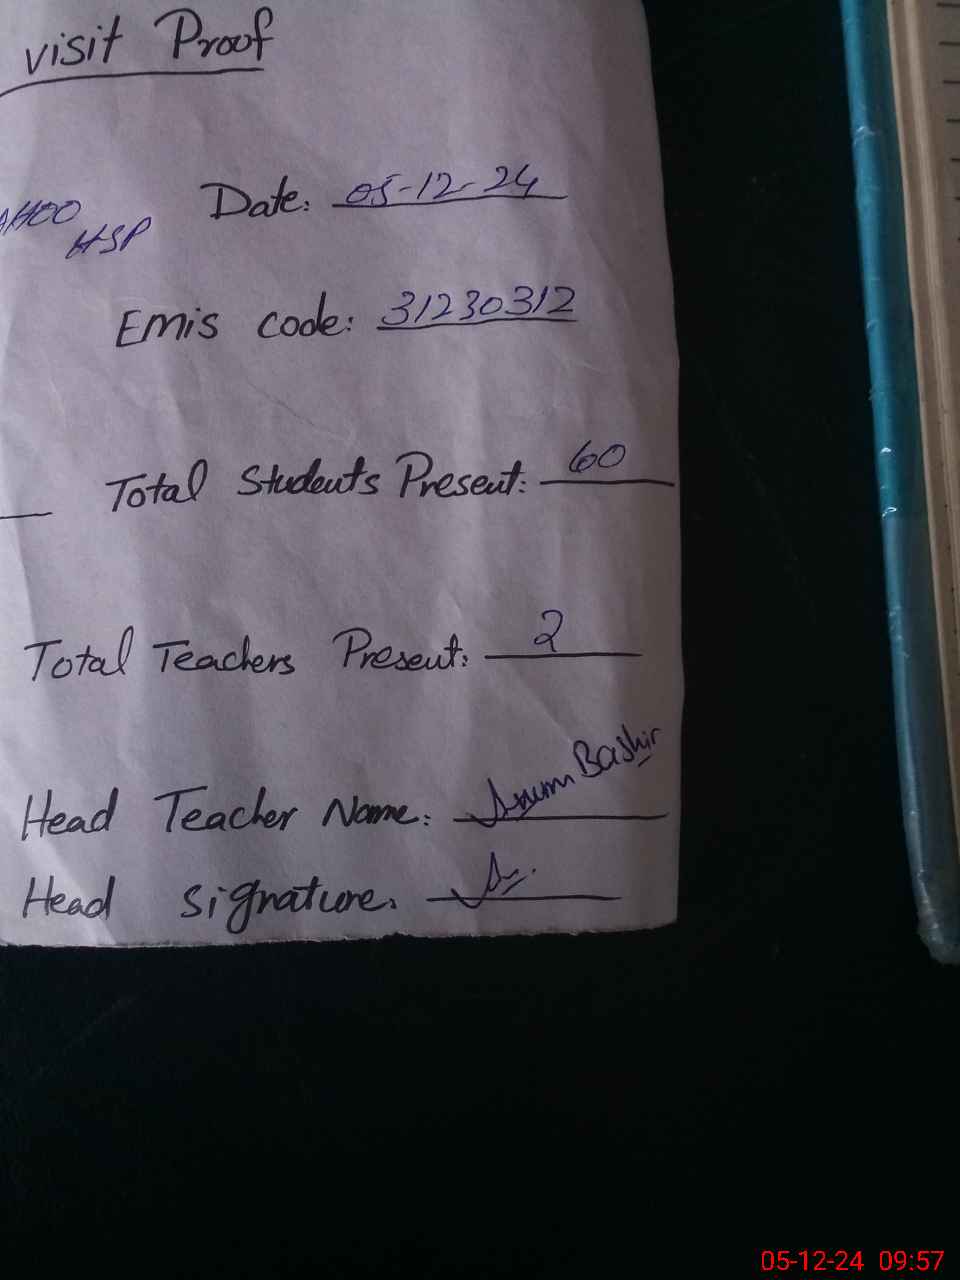 visit Proof
Date: 05-12-24
AHOO
HSP
Emis code: 31230312
Total Students Present: 60
Total Teachers Present: 2
Head Teacher Name: Anum Bashir
Head signature:
05-12-24 09:57